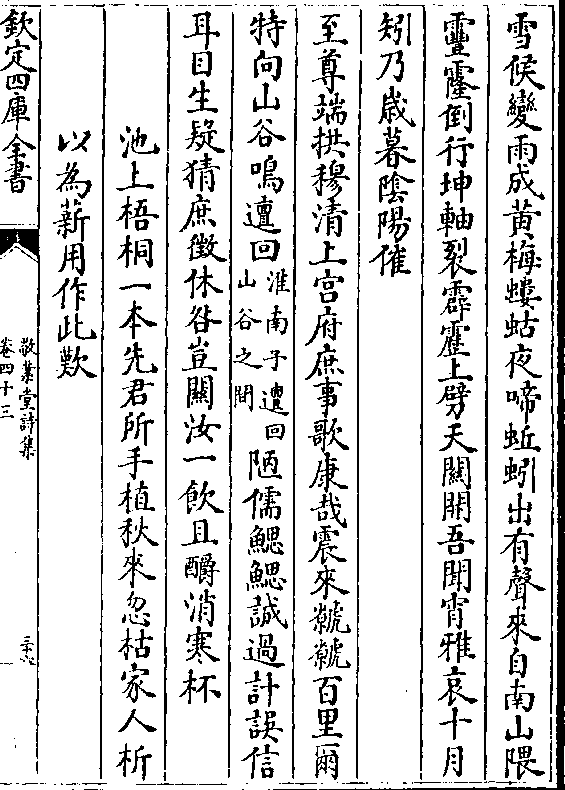 雪候變雨成黃梅螻蛄夜啼蚯蚓出有聲來自南山隈
靈𩆝倒行坤軸裂霹靂上劈天關開吾聞宵雅哀十月
矧乃歲暮陰陽催
至尊端拱穆清上宮府庶事歌康哉震來虩虩百里爾
特向山谷鳴邅回淮南子邅回山谷之閒陋儒鰓鰓誠過計誤信
耳目生疑猜庶徵休咎豈關汝一飲且釂消寒杯
池上梧桐一本先君所手植秋來忽枯家人析
以為薪用作此歎
欽定四庫全書
敬業堂詩集
卷四十三
三十六